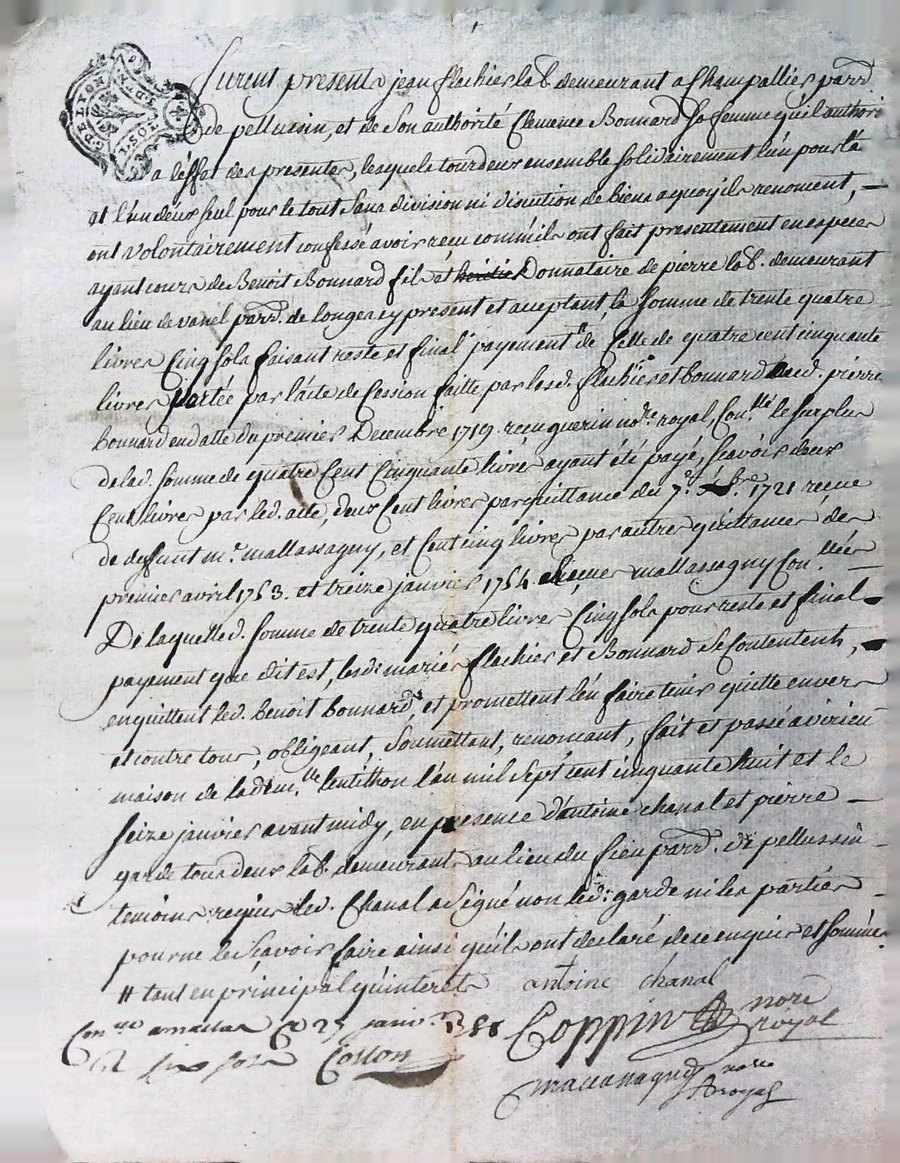 furent presents jean flachier lab. demeurant a Champallier parr.
de pellussin, et de Son authorité Clemance Bonnard Sa femme quil authori
a l'effet des presentes, lesquels tous deux ensemble solidairement l'un pour l'a
et l'un deux seul pour le tout Sans division ni discution de biens a quoy ils renoncent, —
ont volontairement confessé avoir reçu comm'ils ont fait presentement en especes
ayant cours de Benoit Bonnard fils et Donnataire de pierre lab. demeurant
au lieu de vanel parr. de longes icy present et acceptant, la Somme de trente quatre
livres Cinq Sols faisant reste et final payement de Celle de quatre cent cinquante
livres portée par l'acte de Cession faitte par lesd. flachier et bonnard aud. pierre
bonnard en datte du premier Decembre 1719. reçu guerin no.re royal, Con.llé le surplus
de lad. Somme de quatre Cent Cinquante livres ayant été payé, Scavoir deux
Cent livres par led. acte, deux Cent livres par quittance du 7.e 1721 recue
de deffunt m.e mallassagny, et Cent cinq livres par autres quittances des
premier avril 1753. et treize janvier 1754 mallassagny Con.llées —
De laquelled. Somme de trente quatre livres Cinq Sols pour reste et final
payement que dit est, lesd. mariés flachier et Bonnard Se Contentent,
en quittent led. benoit bonnard et promettent l'en faire tenir quitte envers
et contre tous, obligeant, Soumettant, renoncant, fait et passé a virieu
maison de la dem.lle lentilhon l'an mil Sept cent cinquante huit et le
Seize janvier avant midy, en presence d'antoine chanal et pierre —
garde tous deux lab. demeurant au lieu du fieu parr. de pellussin
temoins requis led. Chanal a Signé non led. garde ni les parties
pour ne le Sçavoir faire ainsi quils ont declaré de ce enquis et Sommés
# tant en principal qu'interets antoine chanal
Con.llé a Ce 27 janv. 1758 Coppin nore royal
R Six Sols nore royal